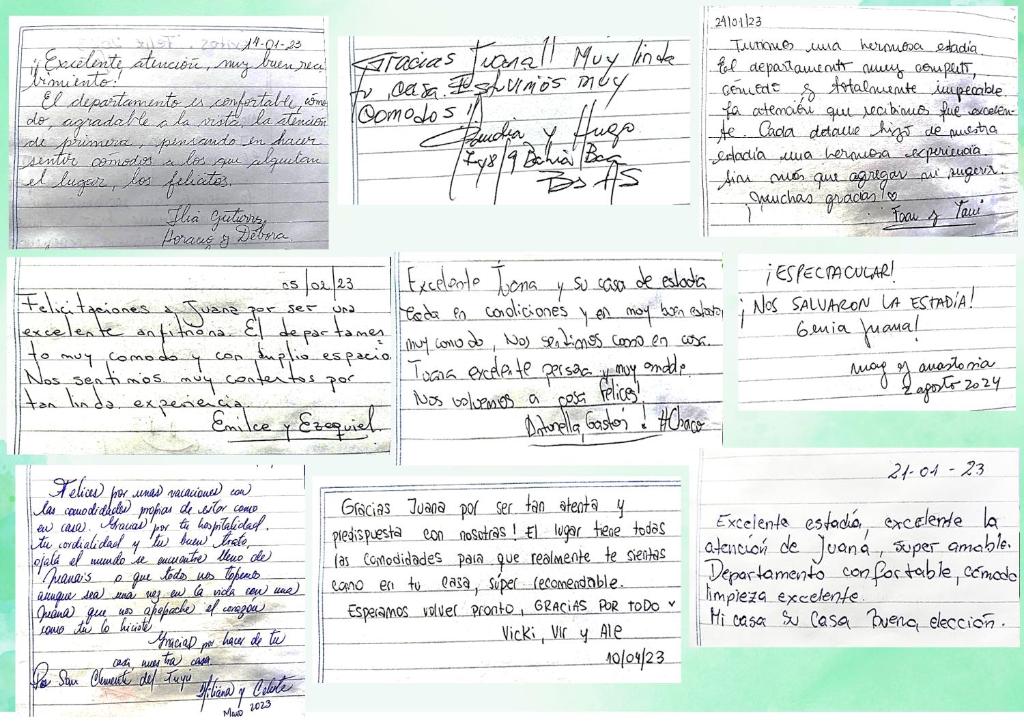 14-01-23
¡Excelente atención, muy buen reci
bimiento!
El departamento es confortable, cómo
do, agradable a la vista, la atención
de primera, pensando en hacer
sentir comodos a los que alquilan
el lugar, los felicitos.
Ilia Gutierrez
Horacio y Débora
Gracias Juana!! Muy linda
tu casa. Estuvimos muy
comodos!!
y Hugo
7y8/9 Bahia Bca
Bs AS
24/01/23
Tuvimos una hermosa estadía.
El departamento muy completo,
cómodo y totalmente impecable.
La atención que recibimos fue excelen-
te. Cada detalle hizo de nuestra
estadía una hermosa experiencia.
Sin más que agregar ni sugerir.
¡Muchas gracias! ♡
y
05/02/23
Felicitaciones a Juana por ser una
excelente anfitriona. El departamen
to muy comodo y con amplio espacio.
Nos sentimos muy contentos por
tan linda experiencia
Emilce y Ezequiel
Excelente Juana y su casa de estadia
toda en condiciones y en muy buen estado
muy comodo, Nos sentimos como en casa.
Juana excelente persona y muy amable.
Nos volvemos a casa felices!
Antonella, Gastón! #Chaco
¡ESPECTACULAR!
¡NOS SALVARON LA ESTADÍA!
Genia Juana!
may y anastasia
2 agosto 2024
Felices por unas vacaciones con
las comodidades propias de estar como
en casa. Gracias por tu hospitalidad,
tu cordialidad y tu buen trato,
ojalá el mundo se encuentre lleno de
Juana's o que todos nos topemos
aunque sea una vez en la vida con una
Juana que nos apapache el corazón
como tu lo hiciste
Gracias por hacer de tu
casa nuestra casa.
Por San Clemente del Tuyú
y Celeste
2023
Gracias Juana por ser tan atenta y
predispuesta con nosotras! El lugar tiene todas
las comodidades para que realmente te sientas
como en tu casa, súper recomendable.
Esperamos volver pronto, GRACIAS POR TODO ♥
Vicki, Vir y Ale
10/04/23
21-01-23
Excelente estadía, excelente la
atención de Juana, super amable.
Departamento confortable, cómodo
limpieza excelente.
Mi casa Su Casa Buena elección.